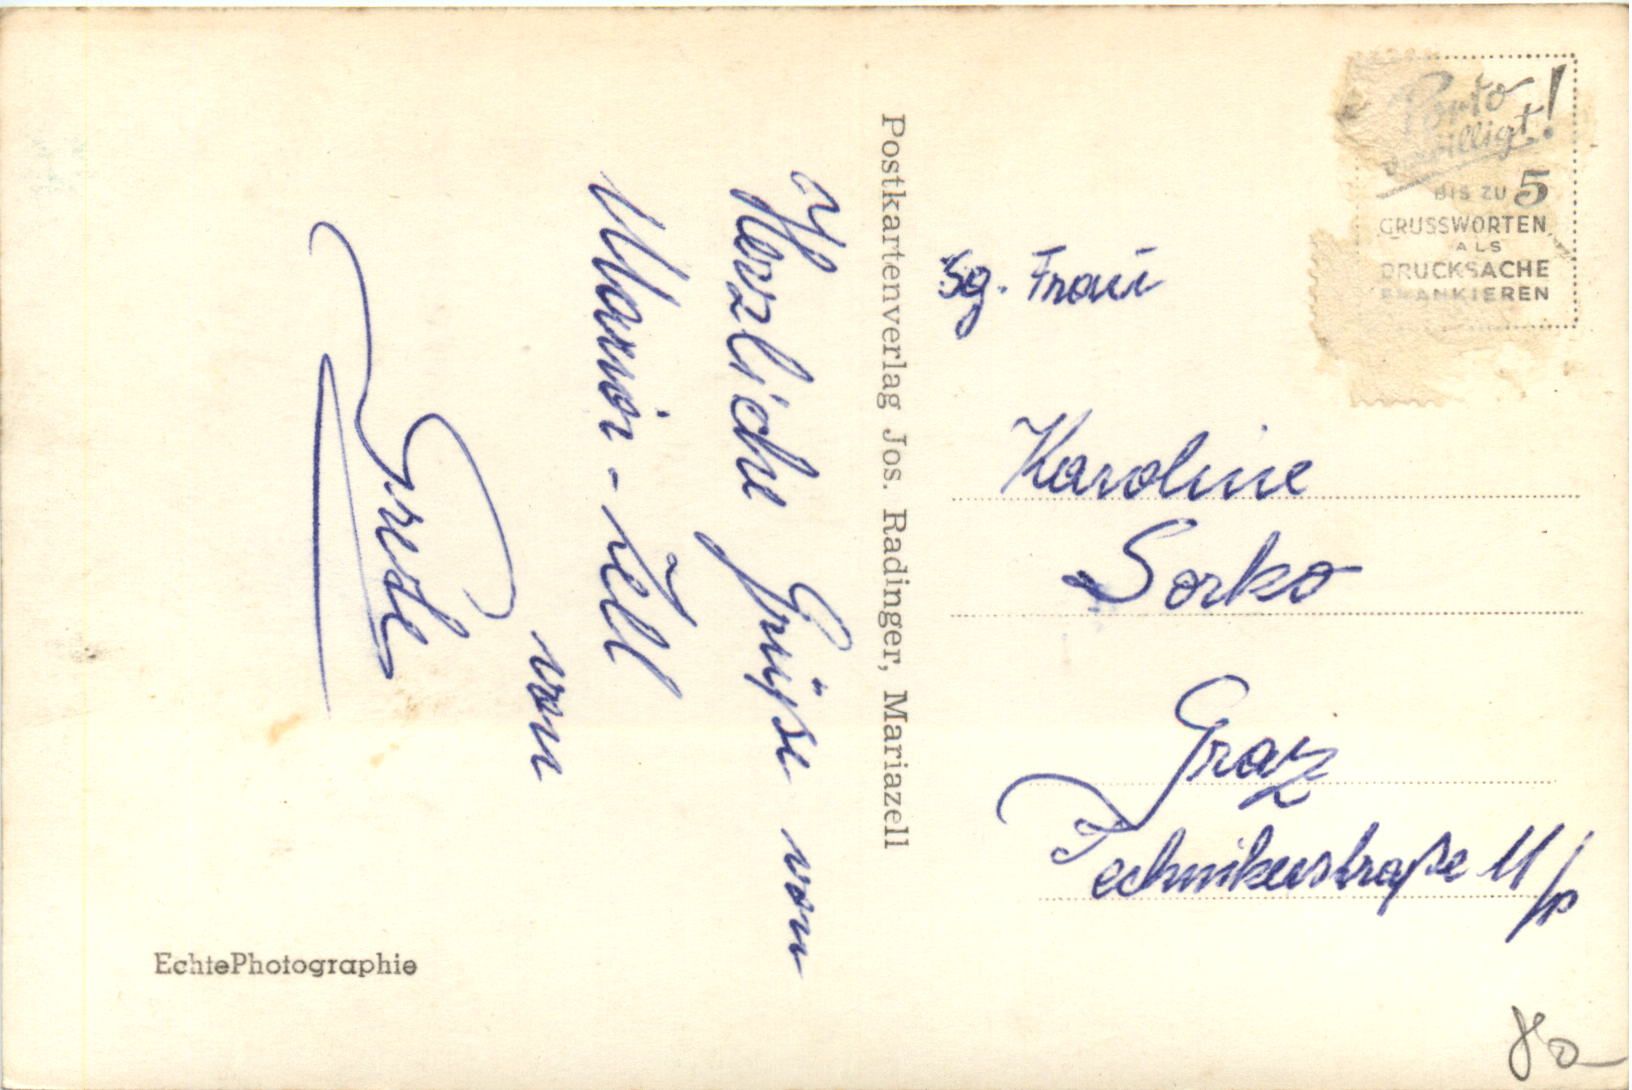 Herzliche Grüße von
Maria-Zell
von
Gretl
Postkartenverlag Jos. Radinger, Mariazell
Echte Photographie
Porto
BIS ZU 5
GRUSSWORTEN
ALS
DRUCKSACHE
FRANKIEREN
Sg. Frau
Karoline
Sorko
Graz
Technikerstraße 11/p